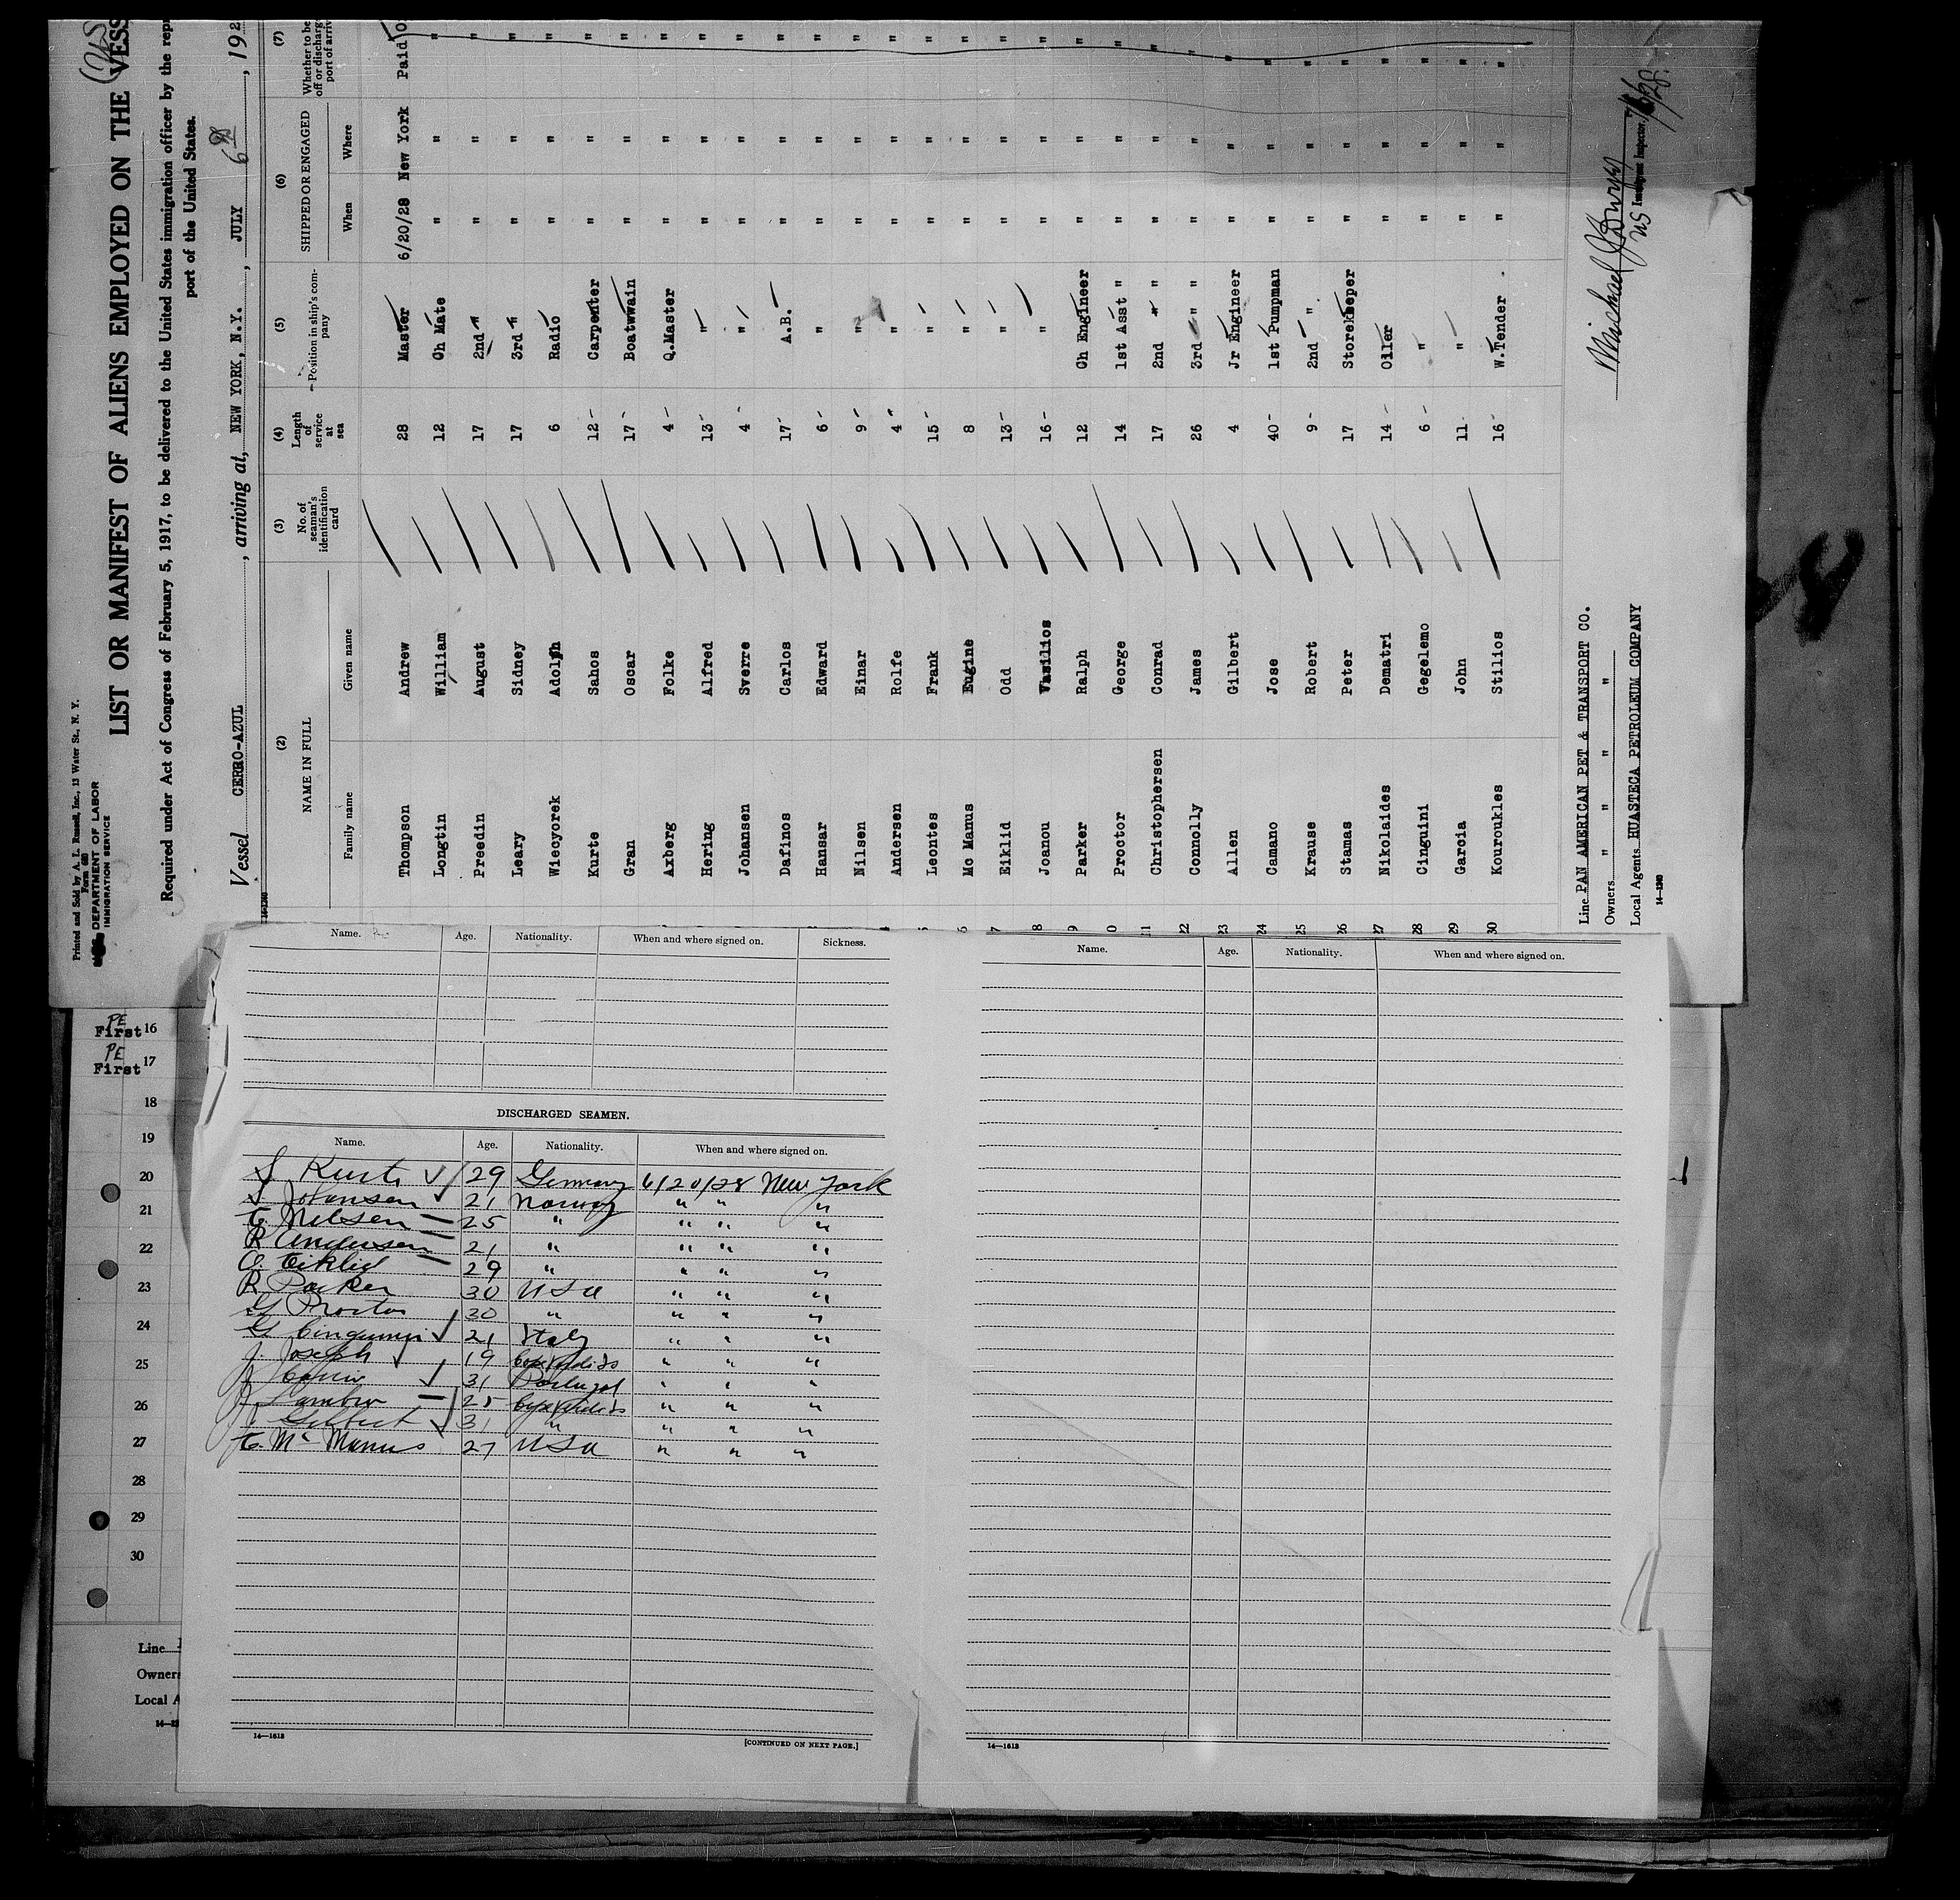 Printed and Sold by A. L. Russell, Inc., 13 Water St., N. Y.
Form 680
DEPARTMENT OF LABOR
IMMIGRATION SERVICE
LIST OR MANIFEST OF ALIENS EMPLOYED ON THE VESS
Required under Act of Congress of February 5, 1917, to be delivered to the United States immigration officer by the repr
port of the United States.
Vessel CERRO-AZUL, arriving at, NEW YORK, N.Y., JULY 6th, 192
(2) (3) (4) (5) (6) (7)
NAME IN FULL No. of seaman's identification card Length of service at sea Position in ship's company SHIPPED OR ENGAGED Whether to be off or discharg port of arriv
Family name Given name When Where
Thompson Andrew 28 Master 6/20/28 New York Paid O
Longtin William 12 Ch Mate " " "
Preedin August 17 2nd " " " "
Leary Sidney 17 3rd " " " "
Wiecyorek Adolph 6 Radio " " "
Kurte Sahos 12 Carpenter " " "
Gran Oscar 17 Boatwwain " " "
Axberg Folke 4 Q.Master " " "
Hering Alfred 13 " " " "
Johansen Sverre 4 " " " "
Dafinos Carlos 17 A.B. " " "
Hansar Edward 6 " " " "
Nilsen Einar 9 " " " "
Andersen Rolfe 4 " " " "
Leontes Frank 15 " " " "
Mc Manus Eugine 8 " " " "
Eiklid Odd 13 " " " "
Joanou Vasilios 16 " " " "
Parker Ralph 12 Ch Engineer " " "
Proctor George 14 1st Asst " " " "
Christophersen Conrad 17 2nd " " " " "
Connolly James 26 3rd " " " " "
Allen Gilbert 4 Jr Engineer " " "
Camano Jose 40 1st Pumpman " " "
Krause Robert 9 2nd " " " "
Stamas Peter 17 Storekeeper " " "
Nikolaides Dematri 14 Oiler " " "
Cinguini Gegelemo 6 " " " "
Garcia John 11 " " " "
30 Kouroukles Stilios 16 W.Tender " " "
Line PAN AMERICAN PET & TRANSPORT CO.
Owners " " " "
Local Agents HUASTECA PETROLEUM COMPANY
14—1240
Michael J
US Immigrant Inspector.
PE
First 16
PE
First 17
18
19
20
21
22
23
24
25
26
27
28
29
30
Line
Owners
Local A
Name. Age. Nationality. When and where signed on. Sickness.
DISCHARGED SEAMEN.
Name. Age. Nationality. When and where signed on.
S Kurte 29 Germany 6/20/28 New York
S Johansen 21 Norway " " "
E. Nilsen 25 " " " "
R Andersen 21 " " " "
O. Eiklid 29 " " " "
R Parker 30 USA " " "
G Proctor 30 " " " "
G Cinguini 21 Italy " " "
J. Joseph 19 Cape Verde Is " " "
J 31 Portugal " " "
J 25 Cape Verde Is " " "
Gilbert 31 " " " "
E. Mc Manus 27 USA " " "
14—1613
[CONTINUED ON NEXT PAGE.]
Name. Age. Nationality. When and where signed on.
14—1613